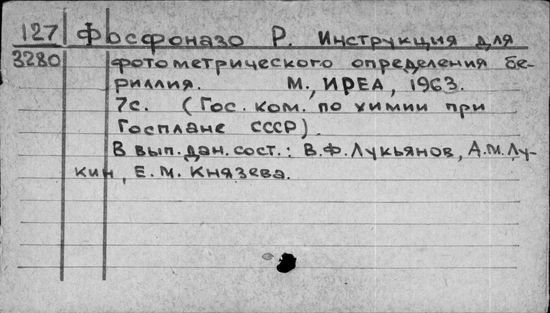 127 Фосфоназо Р. Инструкция для
3280 фотометрического определения бе-
риллия. М., ИРЕА, 1963.
7с. (Гос. ком. по химии при
Госплане СССР).
В вып. дан. сост.: В.Ф. Лукьянов, А.М. Лу-
кин, Е.М. Князева.